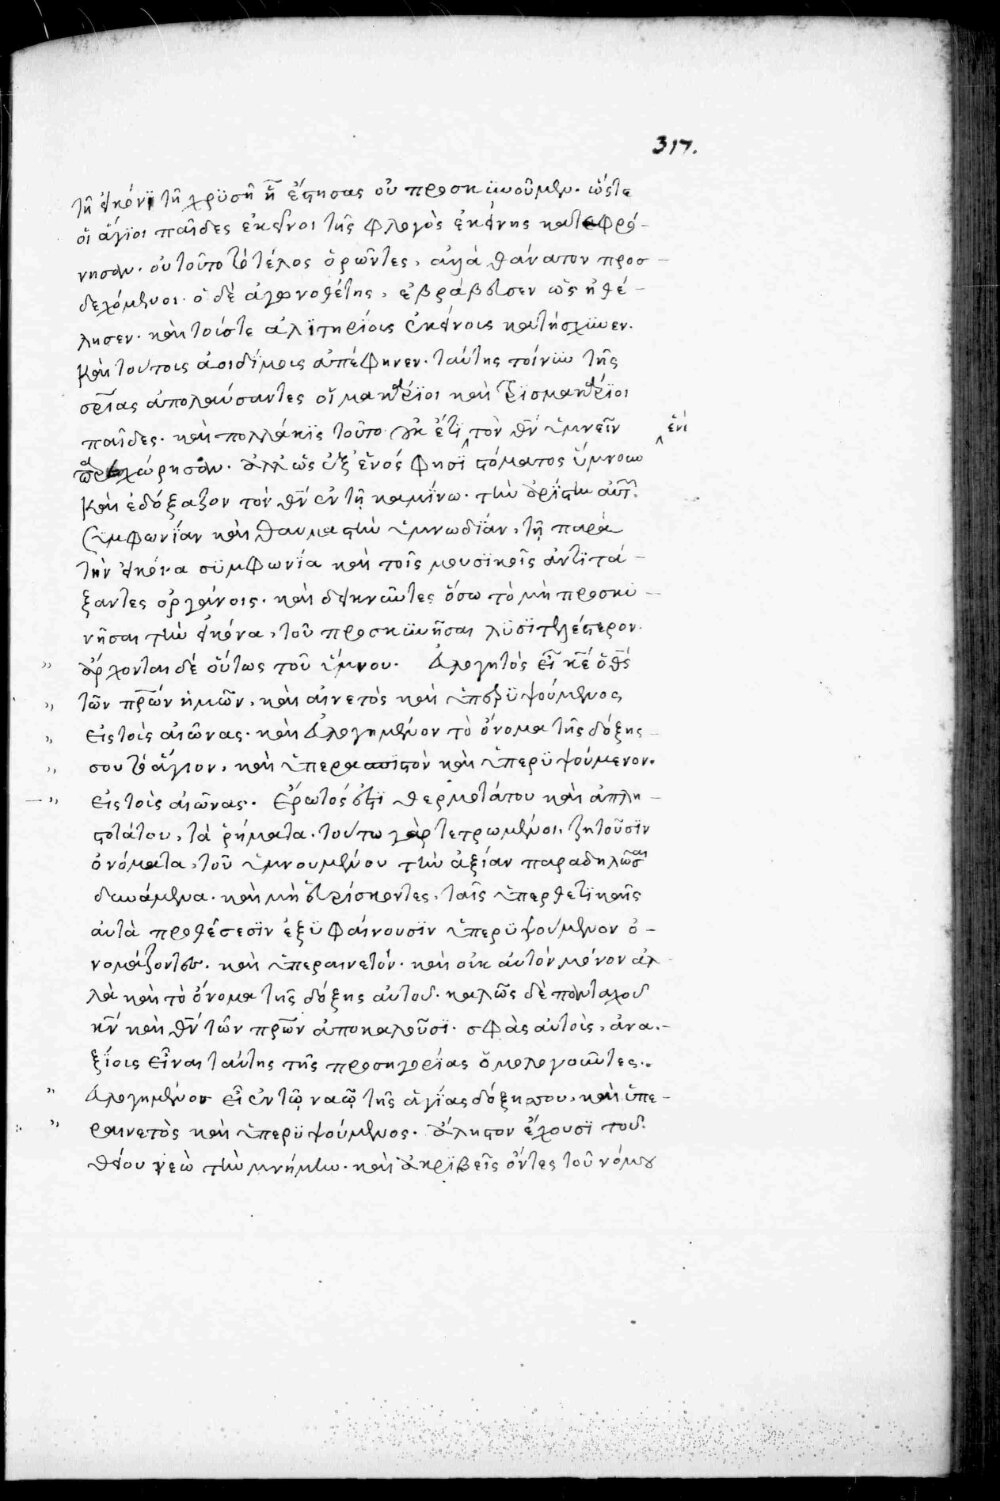 317.
τῆ εἰκόνϊ τῆ χρϋσῆ ἧ ἔστησας οὐ προσκϋνοῦμεν. ὥστε
οἱ ἅγϊοι παῖδες ἐκεῖνοι τῆς φλογὸς ἐκείνης κατεφρό-
νησαν. οὐ τοῦτο τὸ τέλος ὁρῶντες, ἀλλὰ θάνατον προσ-
δεχόμενοι. ὁ δὲ ἀγωνοθέτης, ἐβράβευσεν ὡς ἠθέ-
λησεν. καὶ τούς τε ἀλϊτηρίους ἐκείνους κατήσχϋνεν.
καὶ τούτους ἀοιδίμους ἀπέφηνεν. ταύτης τοίνϋν τῆς
σρίας ἀπολαύσαντες οἱ μακάρϊοι καὶ τρϊσμακάρϊοι
παῖδες. καὶ πολλάκϊς τοῦτο οὐκ ἔτϊ τὸν θν ὑμνεῖν ἑνὶ
παρεχώρησαν. ἀλλ ὡς ἐξ ἑνός φησϊ στόματος ὕμνουν
καὶ ἐδόξαζον τὸν θν ἐν τῆ καμίνω. τὴν ἀρίστην αὐτ
συμφωνίαν καὶ θαυμαστὴν ὑμνωδΐαν, τῆ παρὰ
τὴν εἰκόνα σϋμφωνία καὶ τοῖς μουσϊκοῖς ἀντϊτά-
ξαντες ὀργάνοις. καὶ δεικνύντες ὅσω τὸ μὴ προσκϋ-
νῆσαι τὴν εἰκόνα, τοῦ προσκϋνῆσαι λϋσϊτελέστερον.
ἄρχονται δὲ οὕτως τοῦ ὕμνου. εὐλογητὸς εἶ κε ὁ θς
τῶν πρων ἡμῶν, καὶ αἰνετὸς καὶ ὑπερϋψούμενος
εἰς τοὺς αἰῶνας. καὶ εὐλογημένον τὸ ὄνομα τῆς δόξης
σου τὸ ἅγιον, καὶ ὑπεραινετὸν καὶ ὑπερϋψούμενον.
εἰς τοὺς αἰῶνας. ἔρωτός ἐστϊ θερμοτάτου καὶ ἀπλη-
στοτάτου, τὰ ῥήματα. τούτω γὰρ τετρωμένοι, ζητοῦσϊν
ὀνόματα, τοῦ ὑμνουμένου τὴν ἀξίαν παραδηλῶσαι
δυνάμενα. καὶ μὴ εὑρίσκοντες, ταῖς ὑπερθετϊκαῖς
αὐτὰ προθέσεσϊν ἐξϋφαίνουσϊν ὑπερϋψούμενον ὀ-
νομάζοντες. καὶ ὑπεραινετόν. καὶ οὐκ αὐτὸν μόνον ἀλ-
λὰ καὶ τὸ ὄνομα τῆς δόξης αὐτοῦ. καλῶς δὲ πανταχοῦ
κν καὶ θν τῶν πρων ἀποκαλοῦσϊ. σφὰς αὐτοὺς, ἀνα-
ξίους εἶναι ταύτης τῆς προσηγορίας ὁμολογοῦντες.
εὐλογημένος εἶ ἐν τῷ ναῷ τῆς ἁγίας δόξης σου, καὶ ὑπε-
ραινετὸς καὶ ὑπερϋψούμενος. ἄληστον ἔχουσϊ τοῦ
θείου νεὼ τὴν μνήμην. καὶ ἀκρϊβεῖς ὄντες τοῦ νόμου